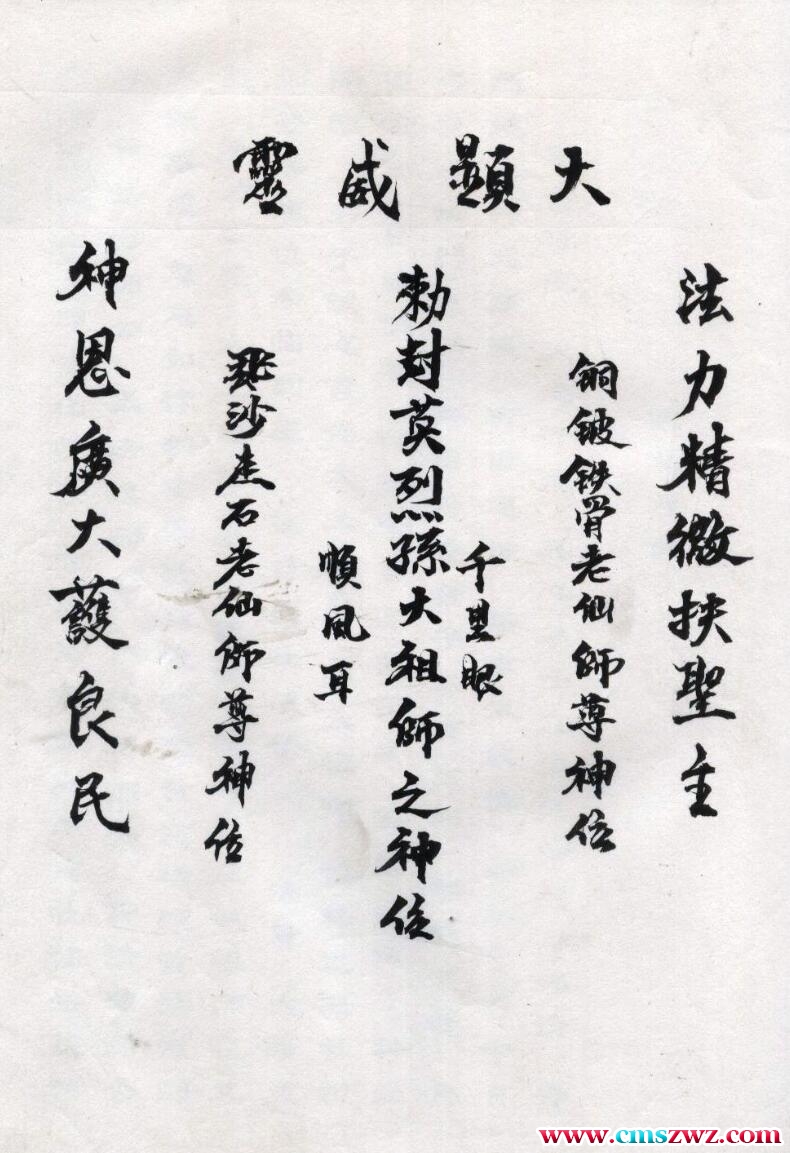 大顯威靈
法力精微扶聖主
銅鈹鉄骨老仙師尊神位
千里眼
勅封英烈孫大祖師之神位
順風耳
飛沙走石老仙師尊神位
神恩廣大護良民
www.cmszwz.com